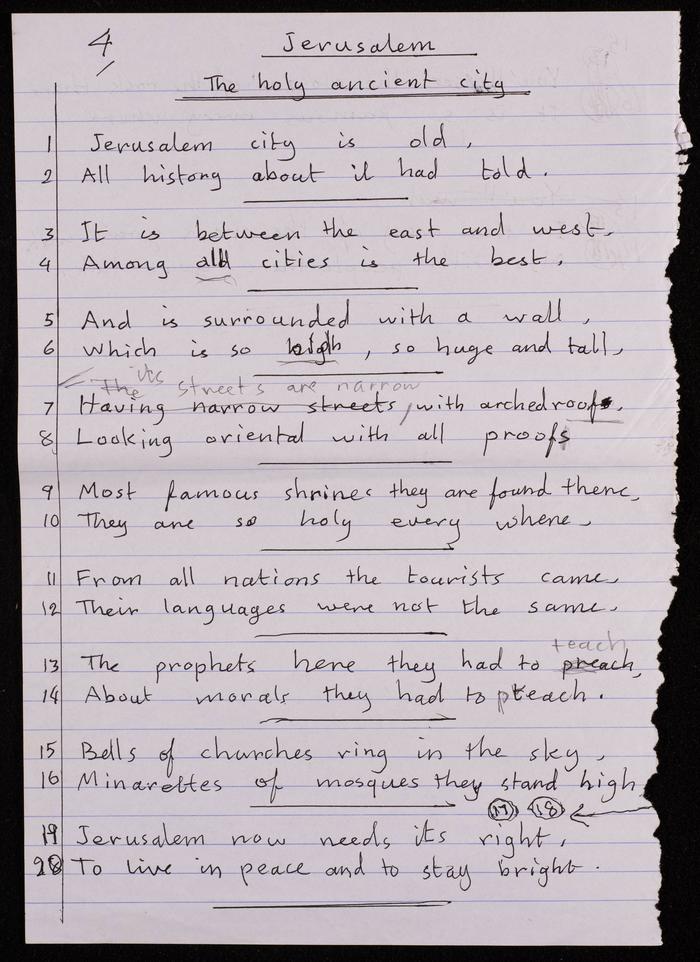 4 Jerusalem
The holy ancient city
1 Jerusalem city is old,
2 All history about it had told.
3 It is between the east and west,
4 Among all cities is the best,
5 And is surrounded with a wall,
6 Which is so high, so huge and tall,
its
The streets are narrow
7 Having narrow streets, with arched roofs.
8 Looking oriental with all proofs
9 Most famous shrines they are found there,
10 They are so holy every where,
11 From all nations the tourists came,
12 Their languages were not the same.
teach
13 The prophets here they had to preach,
14 About morals they had to pteach.
15 Bells of churches ring in the sky,
16 Minarettes of mosques they stand high
17 18
19 Jerusalem now needs its right,
20 To live in peace and to stay bright.